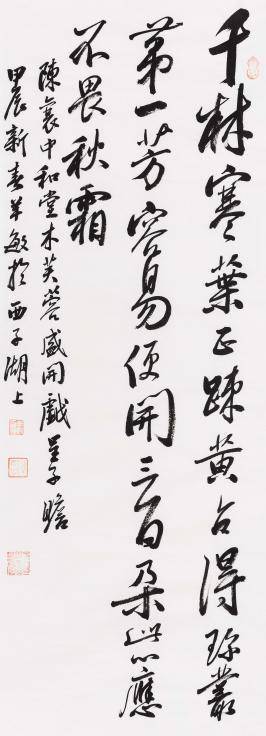 千林寒葉正疎黄占得珍叢
第一芳容易便開三百朶此心應
不畏秋霜
陳襄中和堂木芙蓉盛開戲呈子瞻
甲辰新春羊敏於西子湖上